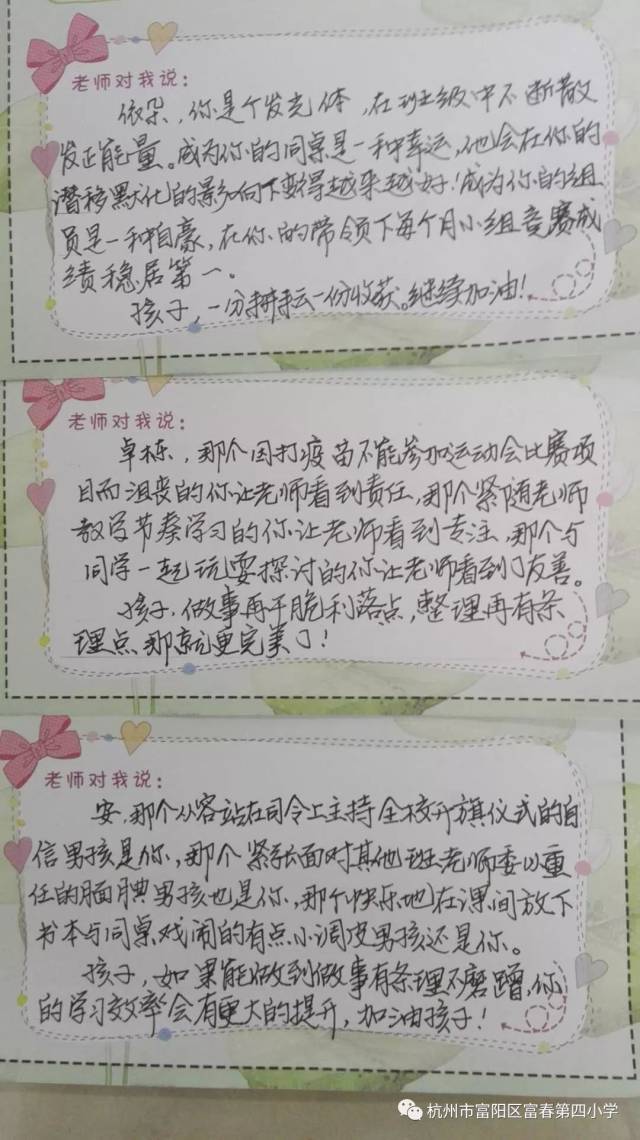 老师对我说：
依朵，你是个发光体，在班级中不断散
发正能量。成为你的同桌是一种幸运，他会在你的
潜移默化的影响下变得越来越好！成为你的组
员是一种自豪，在你的带领下每个月小组竞赛成
绩稳居第一。
孩子，一分耕耘一份收获。继续加油！
老师对我说：
卓栋，那个因打疫苗不能参加运动会比赛项
目而沮丧的你让老师看到责任，那个紧随老师
教学节奏学习的你让老师看到专注，那个与
同学一起玩耍探讨的你让老师看到了友善。
孩子，做事再干脆利落点，整理再有条
理点，那就更完美了！
老师对我说：
安，那个从容站在司令上主持全校升旗仪式的自
信男孩是你，那个紧张面对其他班老师委以重
任的腼腆男孩也是你，那个快乐地在课间放下
书本与同桌戏闹的有点小调皮男孩还是你。
孩子，如果能做到做事有条理不磨蹭，你
的学习效率会有更大的提升，加油孩子！
杭州市富阳区富春第四小学